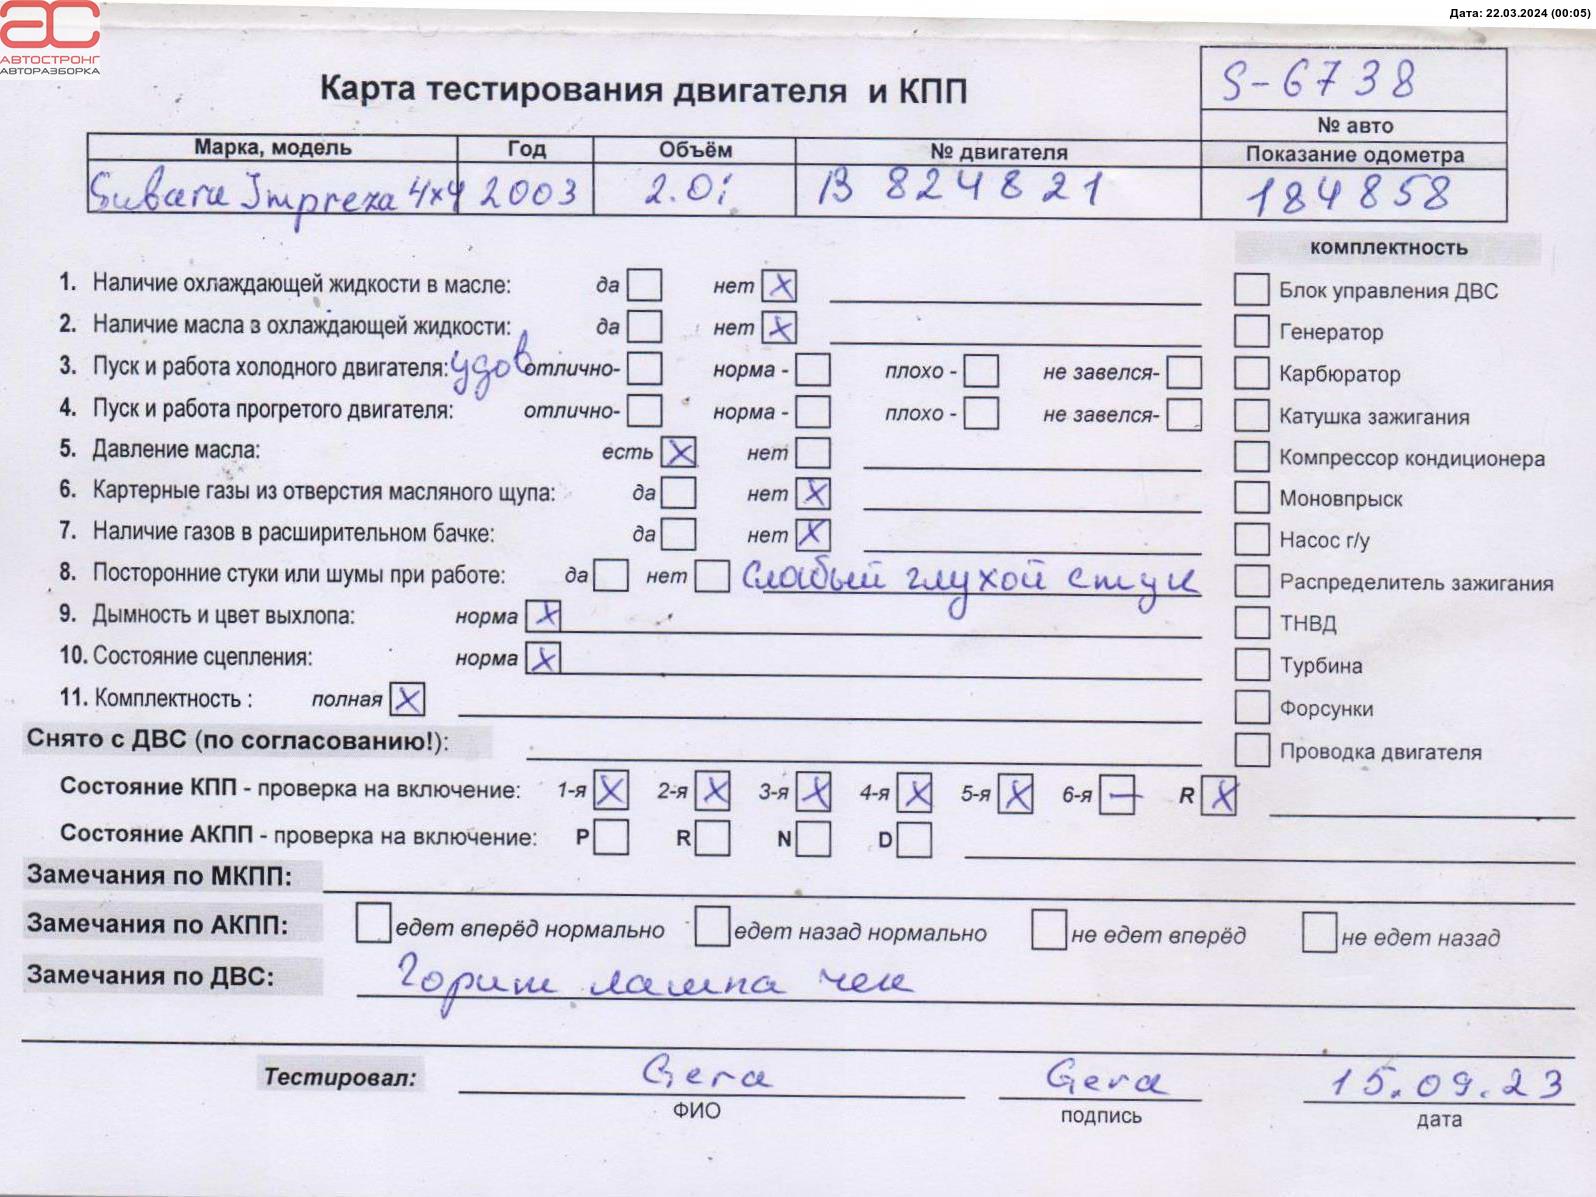 Дата: 22.03.2024 (00:05)
АС
АВТОСТРОНГ
АВТОРАЗБОРКА
Карта тестирования двигателя и КПП
S-6738
№ авто
Марка, модель Год Объём № двигателя Показание одометра
Subaru Impreza 4x4 2003 2.0i B 824821 184858
комплектность
1. Наличие охлаждающей жидкости в масле: да нет X
Блок управления ДВС
2. Наличие масла в охлаждающей жидкости: да нет X
Генератор
3. Пуск и работа холодного двигателя: удов отлично- норма - плохо - не завелся-
Карбюратор
4. Пуск и работа прогретого двигателя: отлично- норма - плохо - не завелся-
Катушка зажигания
5. Давление масла: есть X нет
Компрессор кондиционера
6. Картерные газы из отверстия масляного щупа: да нет X
Моновпрыск
7. Наличие газов в расширительном бачке: да нет X
Насос г/у
8. Посторонние стуки или шумы при работе: да нет слабый глухой стук
Распределитель зажигания
9. Дымность и цвет выхлопа: норма X
ТНВД
10. Состояние сцепления: норма X
Турбина
11. Комплектность : полная X
Форсунки
Снято с ДВС (по согласованию!):
Проводка двигателя
Состояние КПП - проверка на включение: 1-я X 2-я X 3-я X 4-я X 5-я X 6-я — R X
Состояние АКПП - проверка на включение: P R N D
Замечания по МКПП:
Замечания по АКПП: едет вперёд нормально едет назад нормально не едет вперёд не едет назад
Замечания по ДВС: Горит лампа чек
Тестировал: Gera Gera 15.09.23
ФИО подпись дата